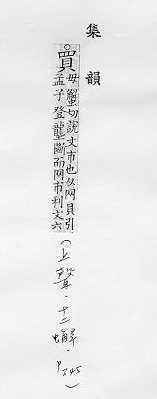 集韻
○買母蟹切說文市也从网貝引
孟子登壟斷而网市利文六
(上聲·十二蠏·P345)